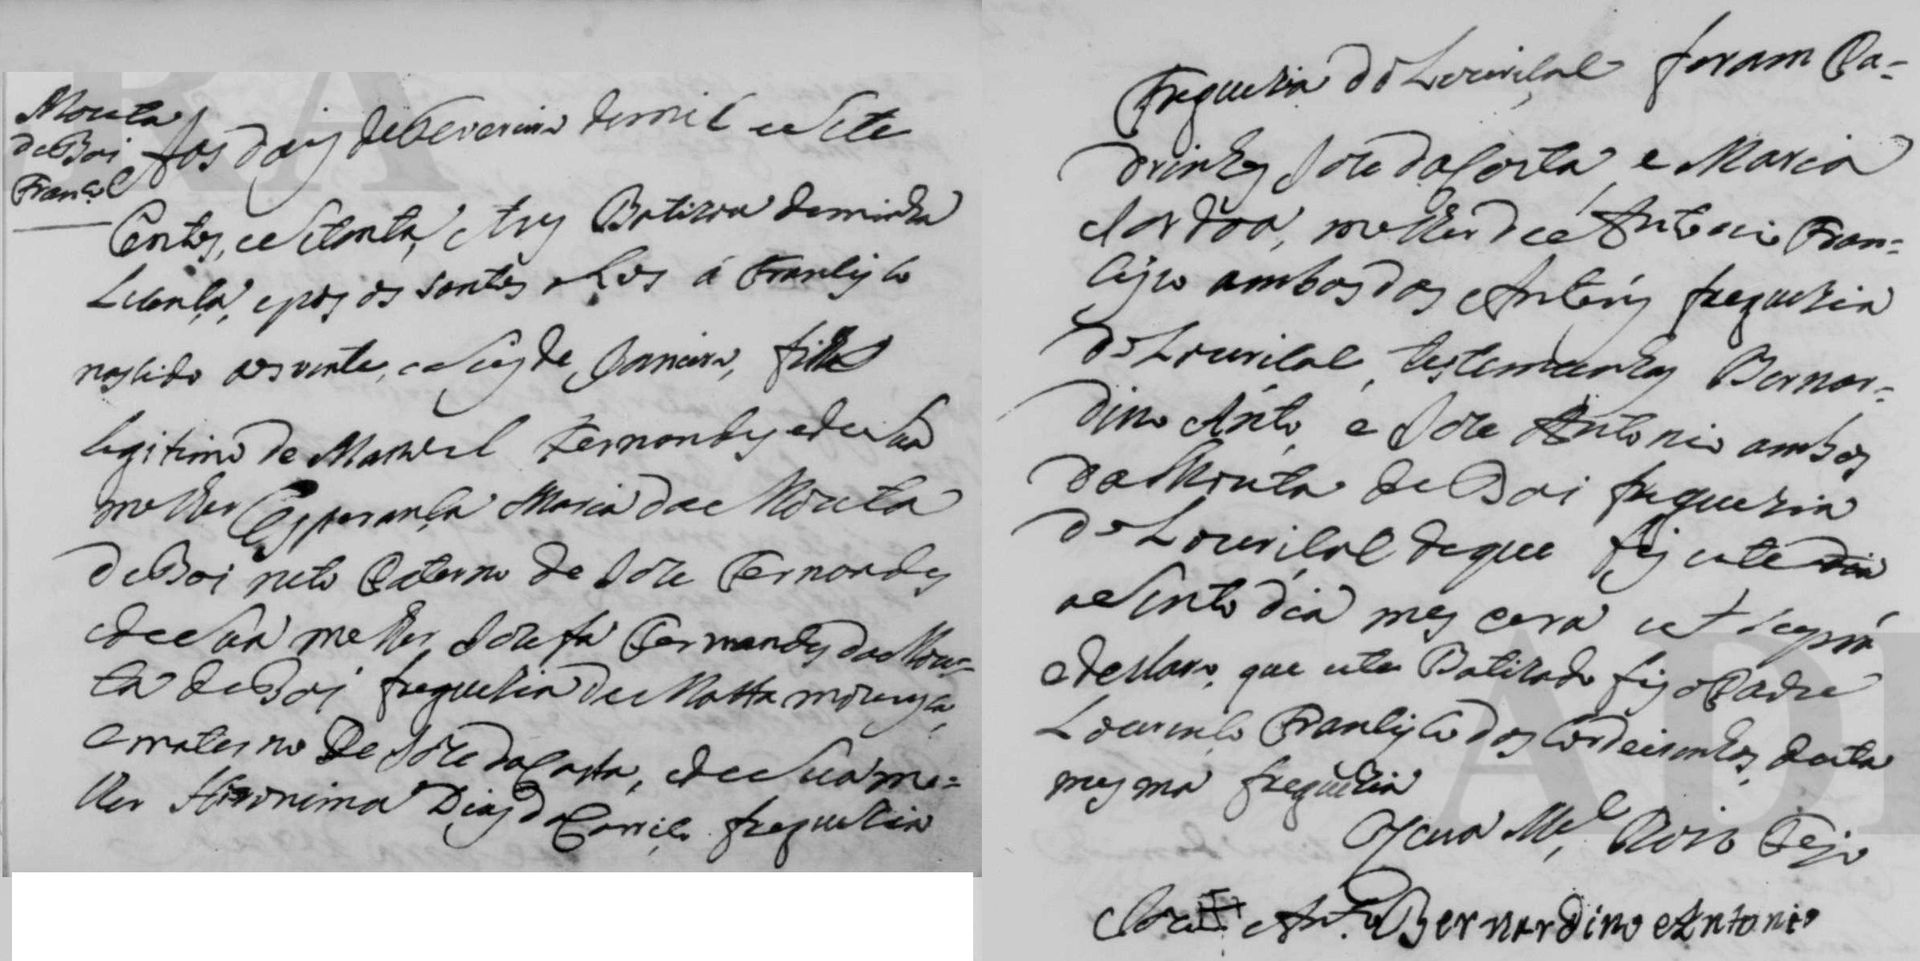 Mouta
de Boi
Franco
Aos dois de Fevereiro de mil e sete
Centos, e setenta, e tres Batizou de minha
Licença, e pos os santos olios á Francisco
nascido aos vinte, e seis de Janeiro, filho
legitimo de Manoel Fernandes e de sua
molher Esperança Maria da Mouta
de Boi neto Paterno de Joze Fernandes
e de sua molher Jozefa Fernandes da Mou=
ta de Boi freguezia de Matta mourisca,
e materno de Joze da Costa, e de sua mo=
lher Hieronima Dias do Carriço freguezia
Freguezia do Louriçal foram Pa=
drinhos Joze da Costa e Maria
Cardoa, molher de Antonio Fran=
cisco ambos dos Antões freguezia
do Louriçal, testemunhas Bernar=
dino Anto e Joze Antonio ambos
da Mouta de Boi freguezia
do Louriçal de que fis este
asento dia mes e era ut supra
e declaro, que este Batizado fis o Padre
Lourenço Francisco dos Cordeirinhos, desta
mesma freguezia
O Cura Mel Roiz Fejo
Joze Anto Bernardino Antonio
RA
AD